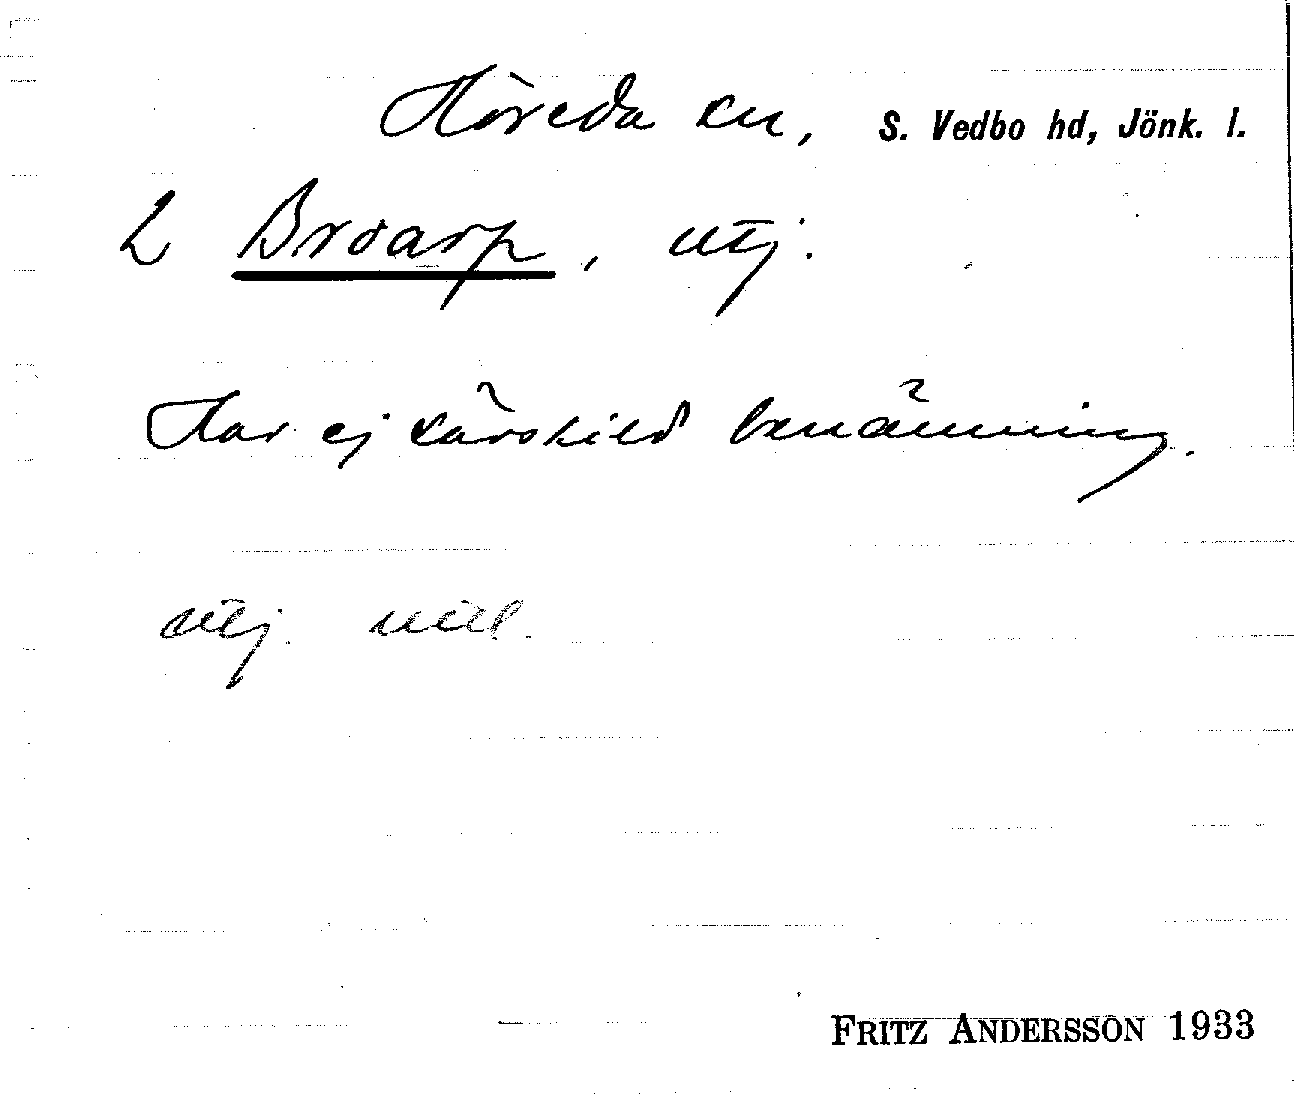 Höreda sn, S. Vedbo hd, Jönk. l.
2 Broarp, utj.
Har ej särskild benämning.
utj. till
FRITZ ANDERSSON 1933